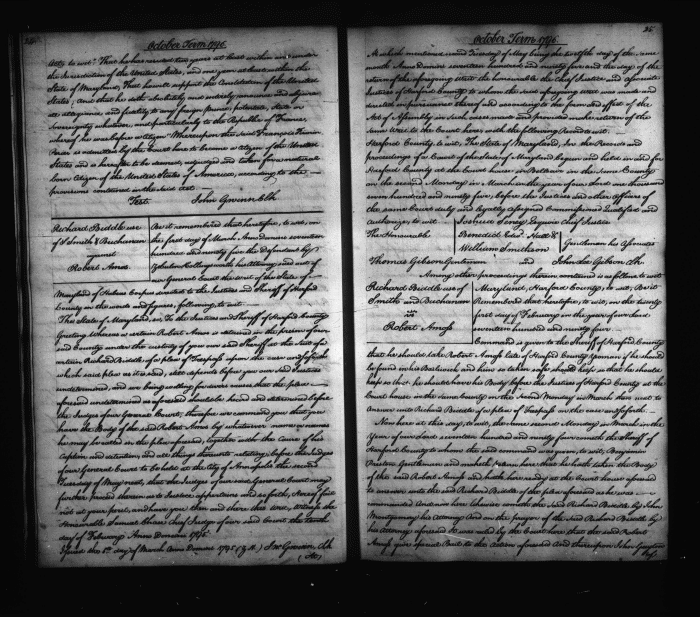 October Term 1796
Acts, to wit. That he has resided two years at least within and under
the Jurisdiction of the United States, and one year at least within the
State of Maryland, That he will support the Constitution of the United
States, and that he doth absolutely and entirely renounce and abjure
all allegiance and fidelity to any foreign prince, potentate, State or
Sovereignty whatever, and particularly to the Republic of France,
whereof he was before a Citizen Whereupon the said François
is admitted by the Court here to become a Citizen of the United
States and is hereafter to be deemed, adjudged and taken for a natural
born Citizen of the United States of America, according to the
provisions contained in the said Act
Test John Gwinn Clk
Richard Biddle use
of S. Smith & Buchanan
against
Robert Amos
Be it remembered that heretofore, to wit, on
the first day of March Anno domini seventeen
hundred and ninety five the defendant by
his attorney sued out of
this General Court the writ of the State of
Maryland of Habeas Corpus directed to the Justices and Sheriff of Harford
County in the words and figures following, to wit.
The State of Maryland, ss, To the Justices and Sheriff of Harford County
Greeting Whereas a certain Robert Amos is detained in the prison of our
said County under the custody of you our said Sheriff at the suit of a
certain Richard Biddle of a plea of Trespass upon the case and so forth
which said plea as it is said, still depends before you our said Justices
undetermined, and we being willing for divers causes that the plea
aforesaid undetermined as aforesaid should be heard and determined before
the Judges of our General Court, therefore we command you that you
have the Body of the said Robert Amos by whatsoever name or names
he may be called in the plea aforesaid, together with the Cause of his
caption and detention, and all things thereunto relating, before the Judges
of our General Court to be held at the City of Annapolis the second
Tuesday of May next, that the Judges of our said General Court may
further proceed therein as to Justice appertains and so forth, Hereof fail
not at your peril, and have you then and there this writ, Witness the
Honourable Samuel Chase Chief Judge of our said Court the tenth
day of February Anno Domini 1795.
Issued the 1st day of March Anno Domini 1795 Jno Gwinn, Clk
October Term 1796.
25
At which mentioned second Tuesday of May being the twelfth day of the same
month Anno Domini seventeen hundred and ninety five and the day of the
return of the aforegoing Writ the honourable the Chief Justice and Associate
Justices of Harford County to whom the said aforegoing writ was made and
directed in pursuance thereof and according to the form and effect of the
Act of Assembly in such cases made and provided make return of the
same Writ to the Court here with the following Record to wit.
Harford County to wit, The State of Maryland, ss. the Records and
proceedings of a Court of the State of Maryland begun and held in and for
Harford County at the Court house in Bellair in the same County
on the second Monday in March in the year of our Lord one thousand
seven hundred and ninety five, before the Justices and other Officers of
the same Court duly and legally assigned Commissioned Qualified and
authorized, to wit
The Honourable
Josias Esquire Chief Justice
Benedict Edwd Hall &
William Smithson
Gentlemen his Associates
Thomas Gibson Gentleman and John Lee Gibson Clk
Among other proceedings therein contained is as follows to wit
Richard Biddle use of
Smith and Buchanan
vs
Robert Amoss
Maryland, Harford County, to wit, Be it
Remembered that heretofore, to wit, on the twenty
first day of February in the year of our Lord
seventeen hundred and ninety five
Command is given to the Sheriff of Harford County
that he should take Robert Amoss late of Harford County Yeoman if he should
be found in his Bailiwick and him so taken safe should keep so that he should
keep so that he should have his Body before the Justices of Harford County at the
Court house in the same County on the second Monday in March then next to
answer unto Richard Biddle of a plea of Trespass on the case and so forth.
Now here at this day, to wit, the same second Monday in March in the
Year of our Lord seventeen hundred and ninety five cometh the Sheriff of
Harford County to whom the said command was given, to wit, Benjamin
Preston Gentleman and maketh return here that he hath taken the Body
of the said Robert Amoss and hath here ready at the Court house aforesaid
to answer unto the said Richard Biddle of the plea aforesaid as he was
commanded And now here likewise cometh the said Richard Biddle by John
Montgomery his Attorney And on the prayer of the said Richard Biddle by
his attorney aforesaid It was ruled by the Court here that the said Robert
Amoss give special Bail to the action aforesaid And thereupon John